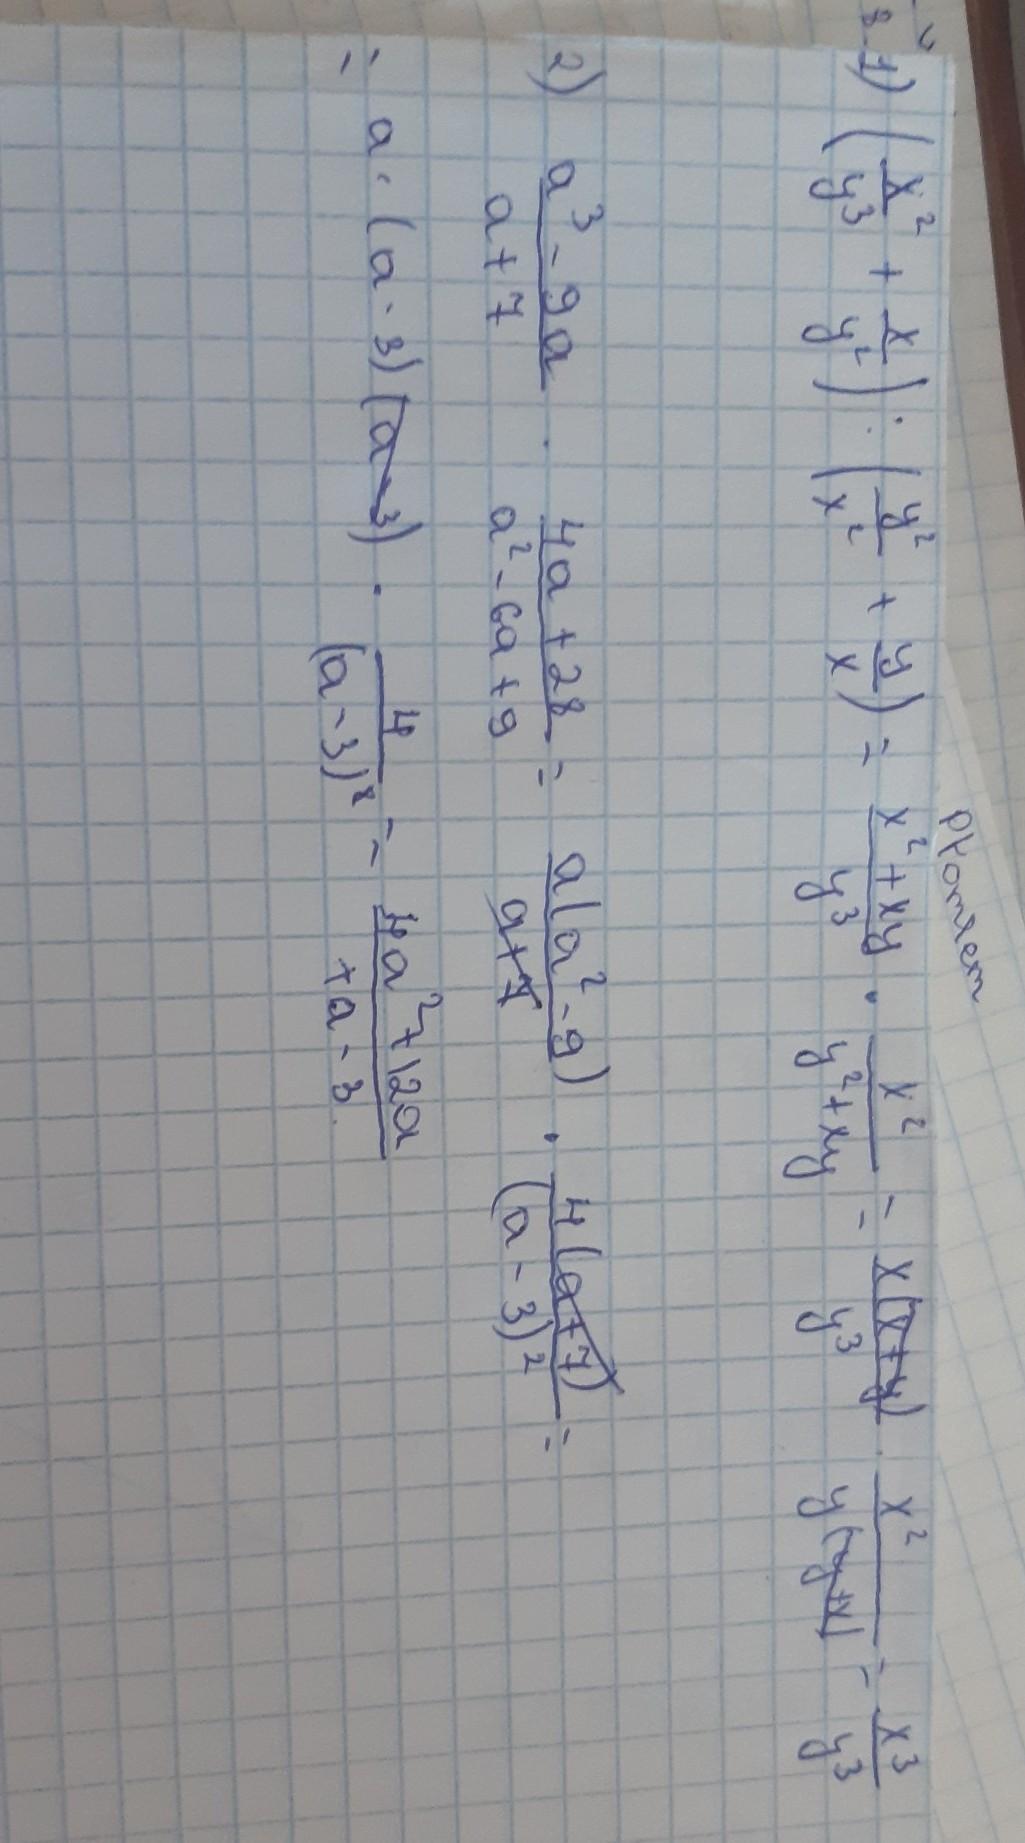 1) (x²/y³ + x/y²) : (y²/x² + y/x) = (x²+xy)/y³ · x²/(y²+xy) = x(x+y)/y³ · x²/y(y+x) = x³/y³
2) (a³ - 9a)/(a + 7) · (4a + 28)/(a² - 6a + 9) = a(a² - 9)/(a+7) · 4(a+7)/(a - 3)² =
= a · (a - 3)(a - 3) · 4/(a - 3)² = (4a² + 12a)/(+a - 3)